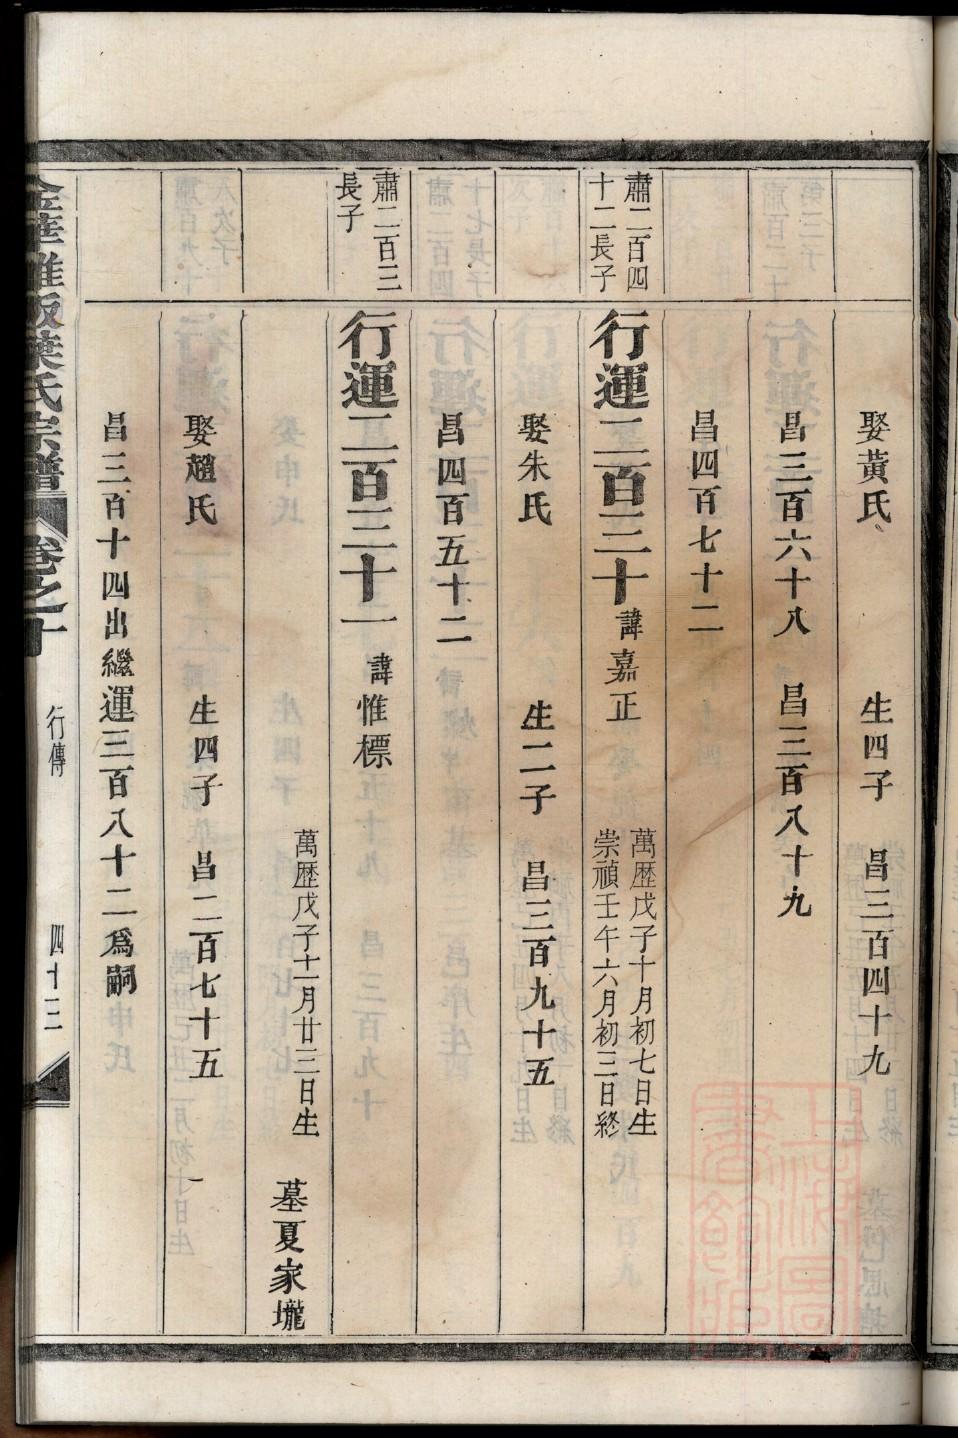 娶黃氏　生四子　昌三百四十九
昌三百六十八　昌三百八十九
昌四百七十二
肅二百四
十二長子
行運三百三十　諱嘉正　萬歷戊子十月初七日生
崇禎壬午六月初三日終
娶朱氏　生二子　昌三百九十五
昌四百五十二
肅二百三
長子
行運三百三十一　諱惟標
萬歷戊子十一月廿三日生　墓夏家壠
娶趙氏　生四子　昌二百七十五
昌三百十四出繼運三百八十二爲嗣
葉氏宗譜　卷之十　行傳　四十三